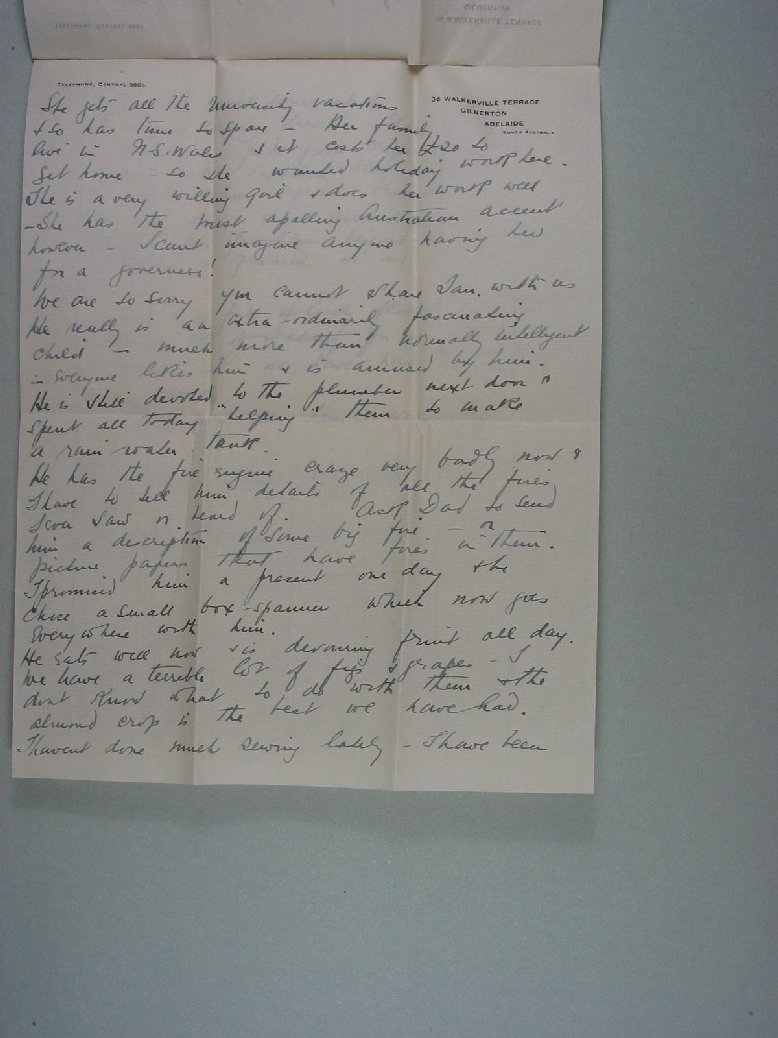 GILBERTON
36 WALKERVILLE TERRACE
TELEPHONE, CENTRAL
TELEPHONE, CENTRAL
36 WALKERVILLE TERRACE
GILBERTON
ADELAIDE
SOUTH AUSTRALIA
She gets all the University vacations
& so has time to spare - Her family
live in N.S.Wales & it costs her £20 to
get home - so she wanted holiday work here.
She is a very willing girl & does her work well
- She has the most apalling Australian accent
however - I cant imagine anyone having her
for a governess!
We are so sorry you cannot share Ian. with us
He really is an extra-ordinarily fascinating
child - much more than normally intelligent
- everyone likes him & is amused by him.
He is still devoted to the plumber next door &
spent all today "helping" them to make
a rain water tank.
He has the fire engine craze very badly now &
I have to tell him details of all the fires
I ever saw or heard of. Ask Dad to send
him a description of some big fire - or
picture papers that have fires in them.
I promised him a present one day & he
chose a small box-spanner which now goes
everywhere with him.
He eats well now & is devouring fruit all day.
We have a terrible lot of figs & grapes - I
dont know what to do with them & the
almond crop is the best we have had.
I havent done much sewing lately - I have been